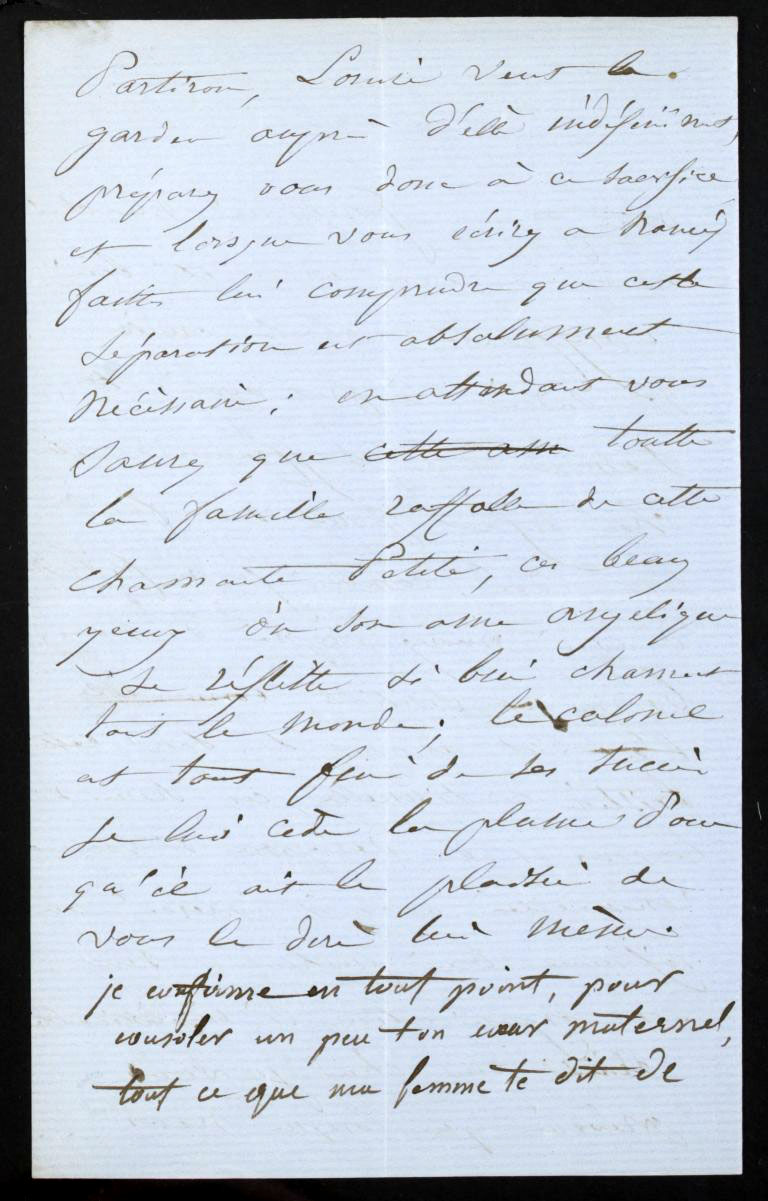 Partiron, Louise veut la
garder auprè d'elle indéfiniment,
préparez vous donc à ce sacrifice
et lorsque vous écrirez a
faittes lui comprendre que cette
séparation est absolument
nécéssaire; en attendant vous
saurez que cette am toutte
la famille raffolle de cette
charmante Petite, ces beaux
yeux où son ame angelique
se réflette si bien charment
tout le monde; le colonel
est tout fier de ses succès
je lui cède la plume pour
qu'il ait le plaisir de
vous le dire lui même.
je confirme en tout point, pour
consoler un peu ton cœur maternel,
tout ce que ma femme te dit de